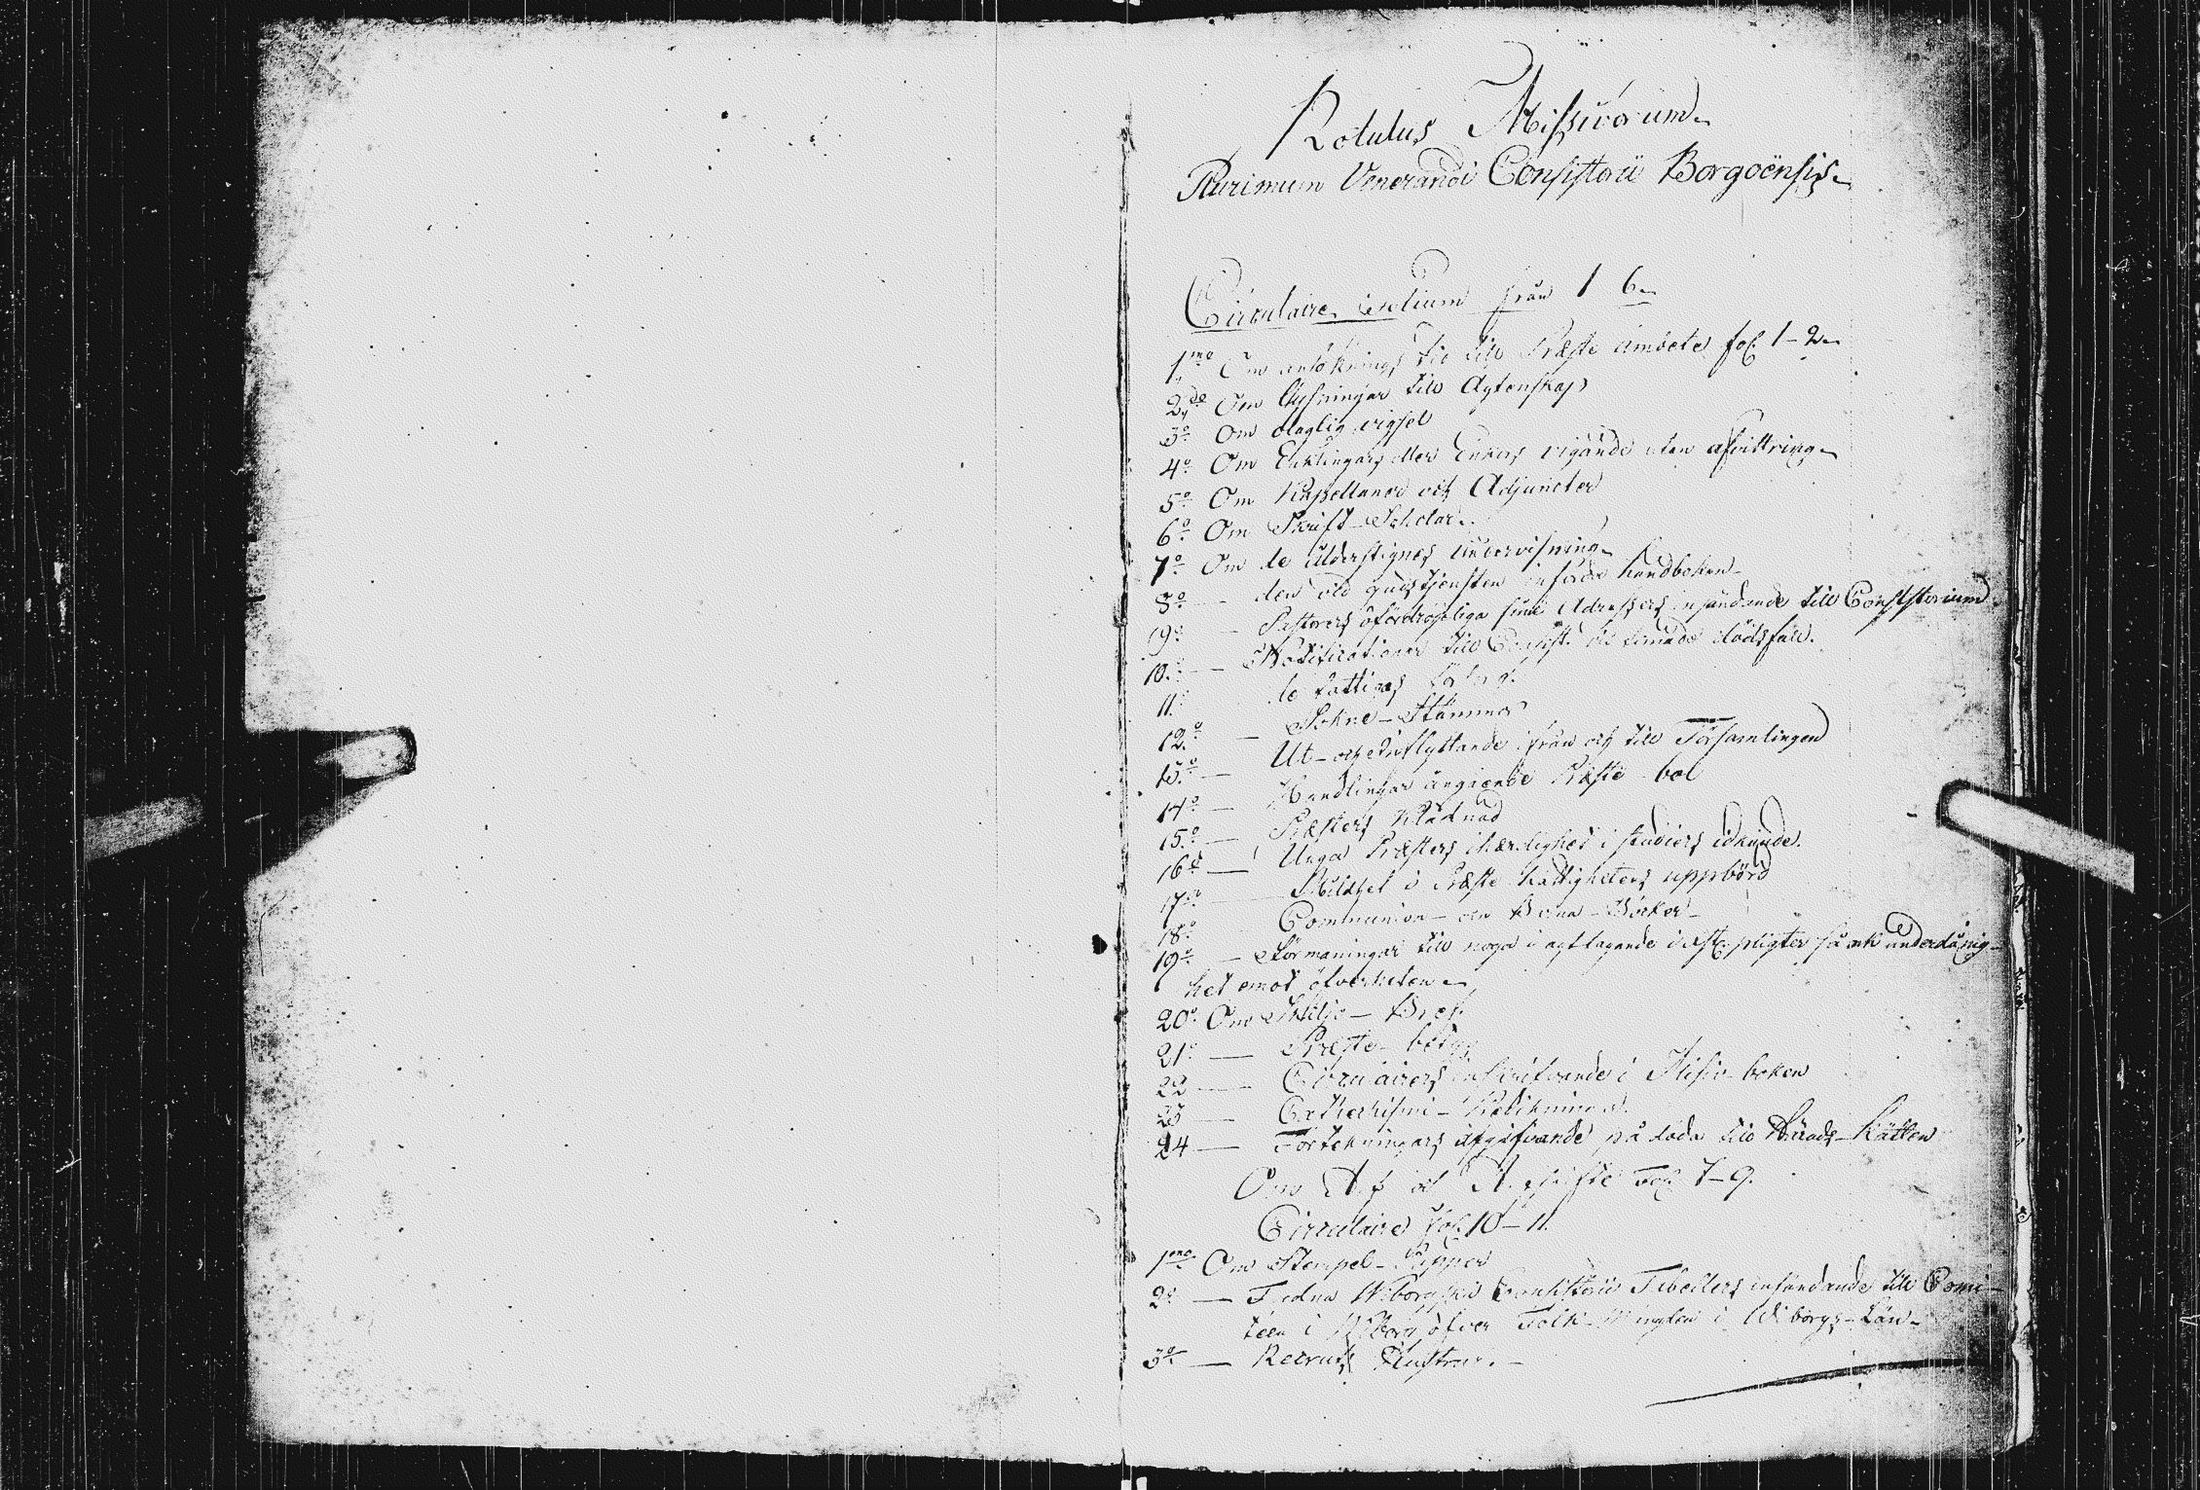 Rotulus Missivorum
Plurimum Venerandi Consistorii Borgoënsis
Circulaire folium från 1 6
1mo Om ansöknings tid till Præste ämbete fol. 1-2
2do Om lysningar till Ägtenskap
3o Om olaglig vigsel
4o Om Enklingars eller Enkors vigande utan afvittring
5o Om Kapellaner och Adjuncter
6o Om Skrift-Scholar
7o Om de ålderstignes undervisning
8o — den vid gudstjensten införde handboken
9o — Pastorers ofördröjeliga sine Adressers insändande till Consistorium
10o — Notificationer till Consist. vid timade dödsfall.
11o de fattigas
12o — Sokne-Stämmor
13o — Ut- och Inflyttande ifrån och till Församlingen
14o — Handlingar angående Præste-bol
15o — Præsters Klädnad
16o — Unga Præsters i studiers idkande.
17o — i Præste Rättigheters uppbörd
18o Communion- och Böcker
19o — Förmaningar till noga i agttagande pligter så ock underdånig-
het emot öfverheten
20o Om Skiljo-Bref
21o — Præste-betyg
22 — Circulairers inskrifvande i Missiv-boken
23 — Cathechismi-
24 — Förtekningars afgifvande på döda till Härads-Rätten
Om 7-9.
Circulaire fol. 10-11.
1mo Om Stempel-Papper
2o — Fredna Wiborgska Consistorii Tabellers insändande till Comi-
téen i Wiborg öfver Folk-Mängden i Wiborgs-Län
3o — Recruts Hustrur.